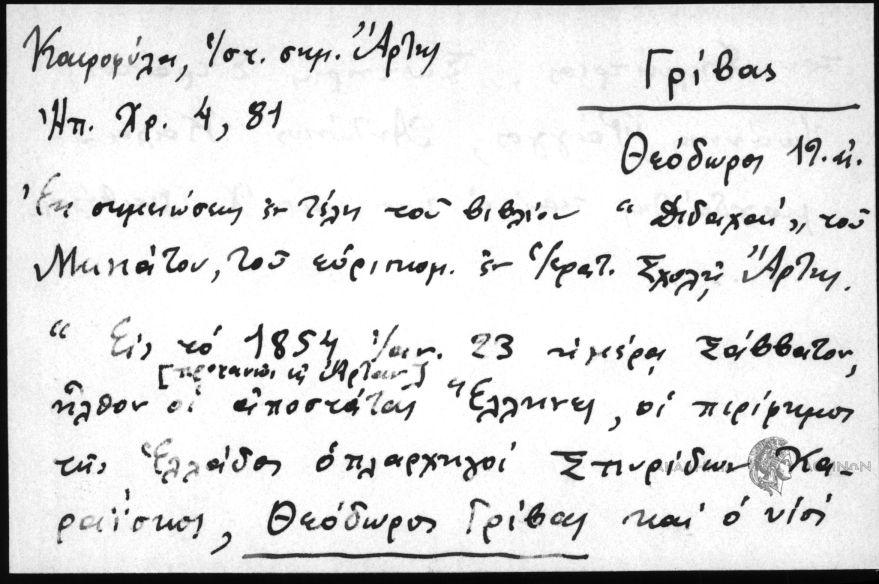 Καιροφύλα, Ἱστ. σημ. Ἄρτης
Ἠπ. Χρ. 4, 81
Γρίβας
Θεόδωρος 19. αἰ.
Ἐκ σημειώσεως ἐν τέλει τοῦ βιβλίου “Διδαχαί„ τοῦ
Μηνιάτου, τοῦ εὑρισκομ. ἐν Ἱερατ. Σχολῇ Ἄρτης.
“Εἰς τὸ 1854 Ἰαν. 23 ἡμέρᾳ Σάββατον,
ἦλθον [πρὸ τῆς Ἄρτης] οἱ ἀποστάται Ἕλληνες, οἱ περίφημοι
τῆς Ἑλλάδος ὁπλαρχηγοί Σπυρίδων Κα-
ραΐσκος, Θεόδωρος Γρίβας καὶ ὁ υἱός